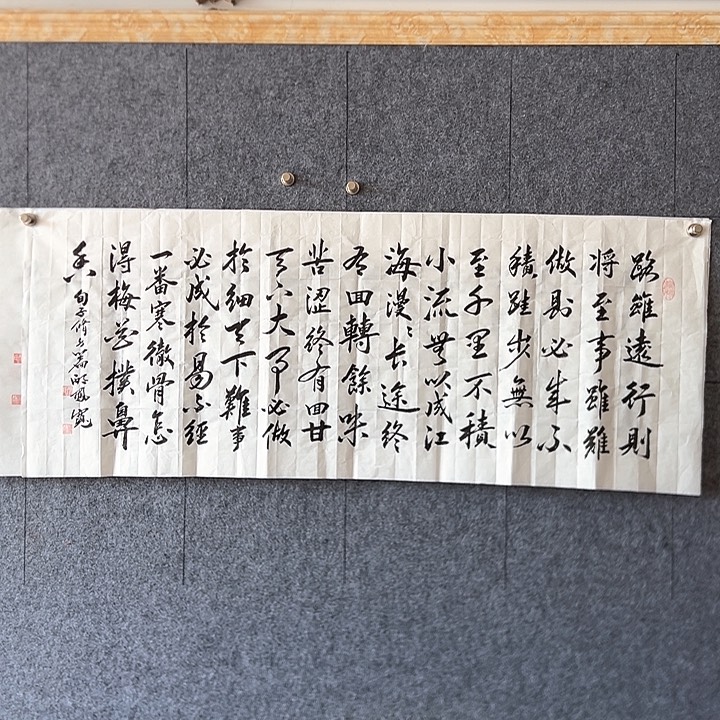 路雖遠行則
将至事雖難
做則必成不
積跬步無以
至千里不積
小流無以成江
海漫〻长途终
有回轉餘味
苦澀终有回甘
天下大事必做
於细天下難事
必成於易不經
一番寒徹骨怎
得梅花撲鼻
香